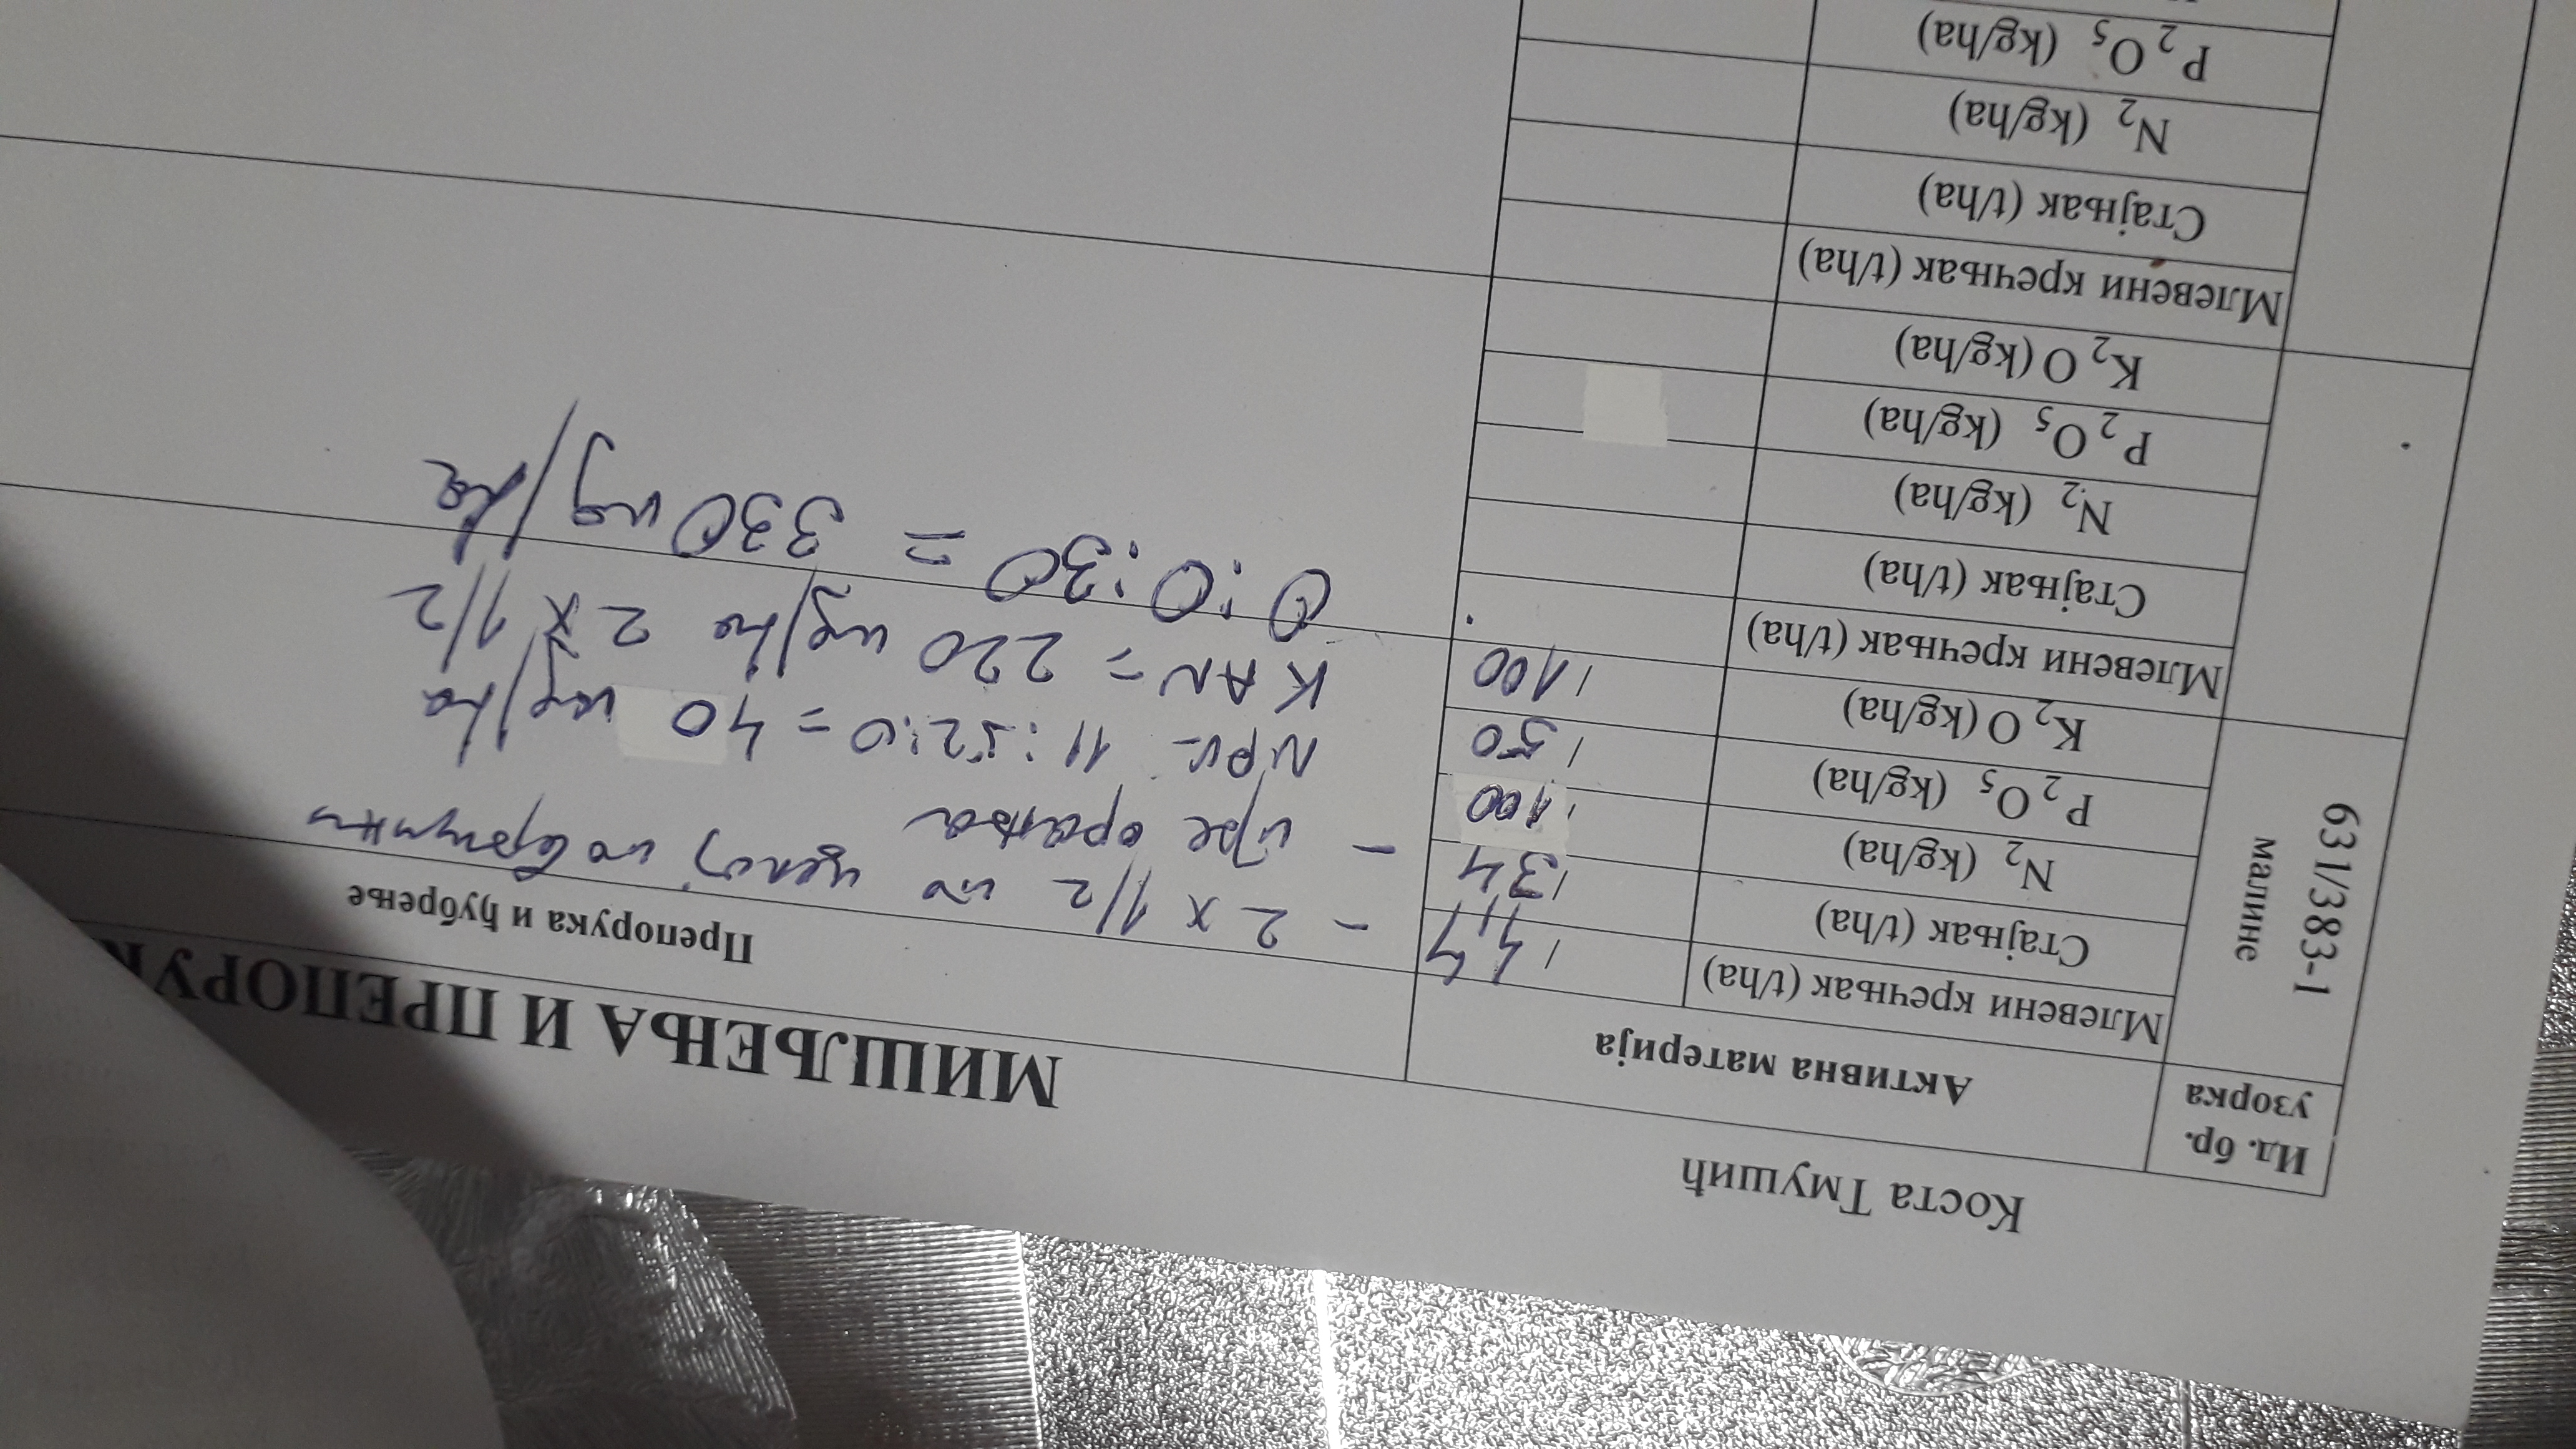 Коста Тмушић
МИШЉЕЊА И ПРЕПОРУК
Ид. бр. узорка
Активна материја
Препорука и ђубрење
631/383-1 малине
Млевени кречњак (t/ha) / 4,4 - 2 x 1/2 по целој површини
Стајњак (t/ha) / 34 - пре орања
N2 (kg/ha) / 100
P2O5 (kg/ha) / 50
K2O (kg/ha) / 100
NPK- 11:52:0 = 40 кg/ha
KAN = 220 кg/ha 2 x 1/2
0:0:30 = 330 кg/ha
Млевени кречњак (t/ha)
Стајњак (t/ha)
N2 (kg/ha)
P2O5 (kg/ha)
K2O (kg/ha)
Млевени кречњак (t/ha)
Стајњак (t/ha)
N2 (kg/ha)
P2O5 (kg/ha)